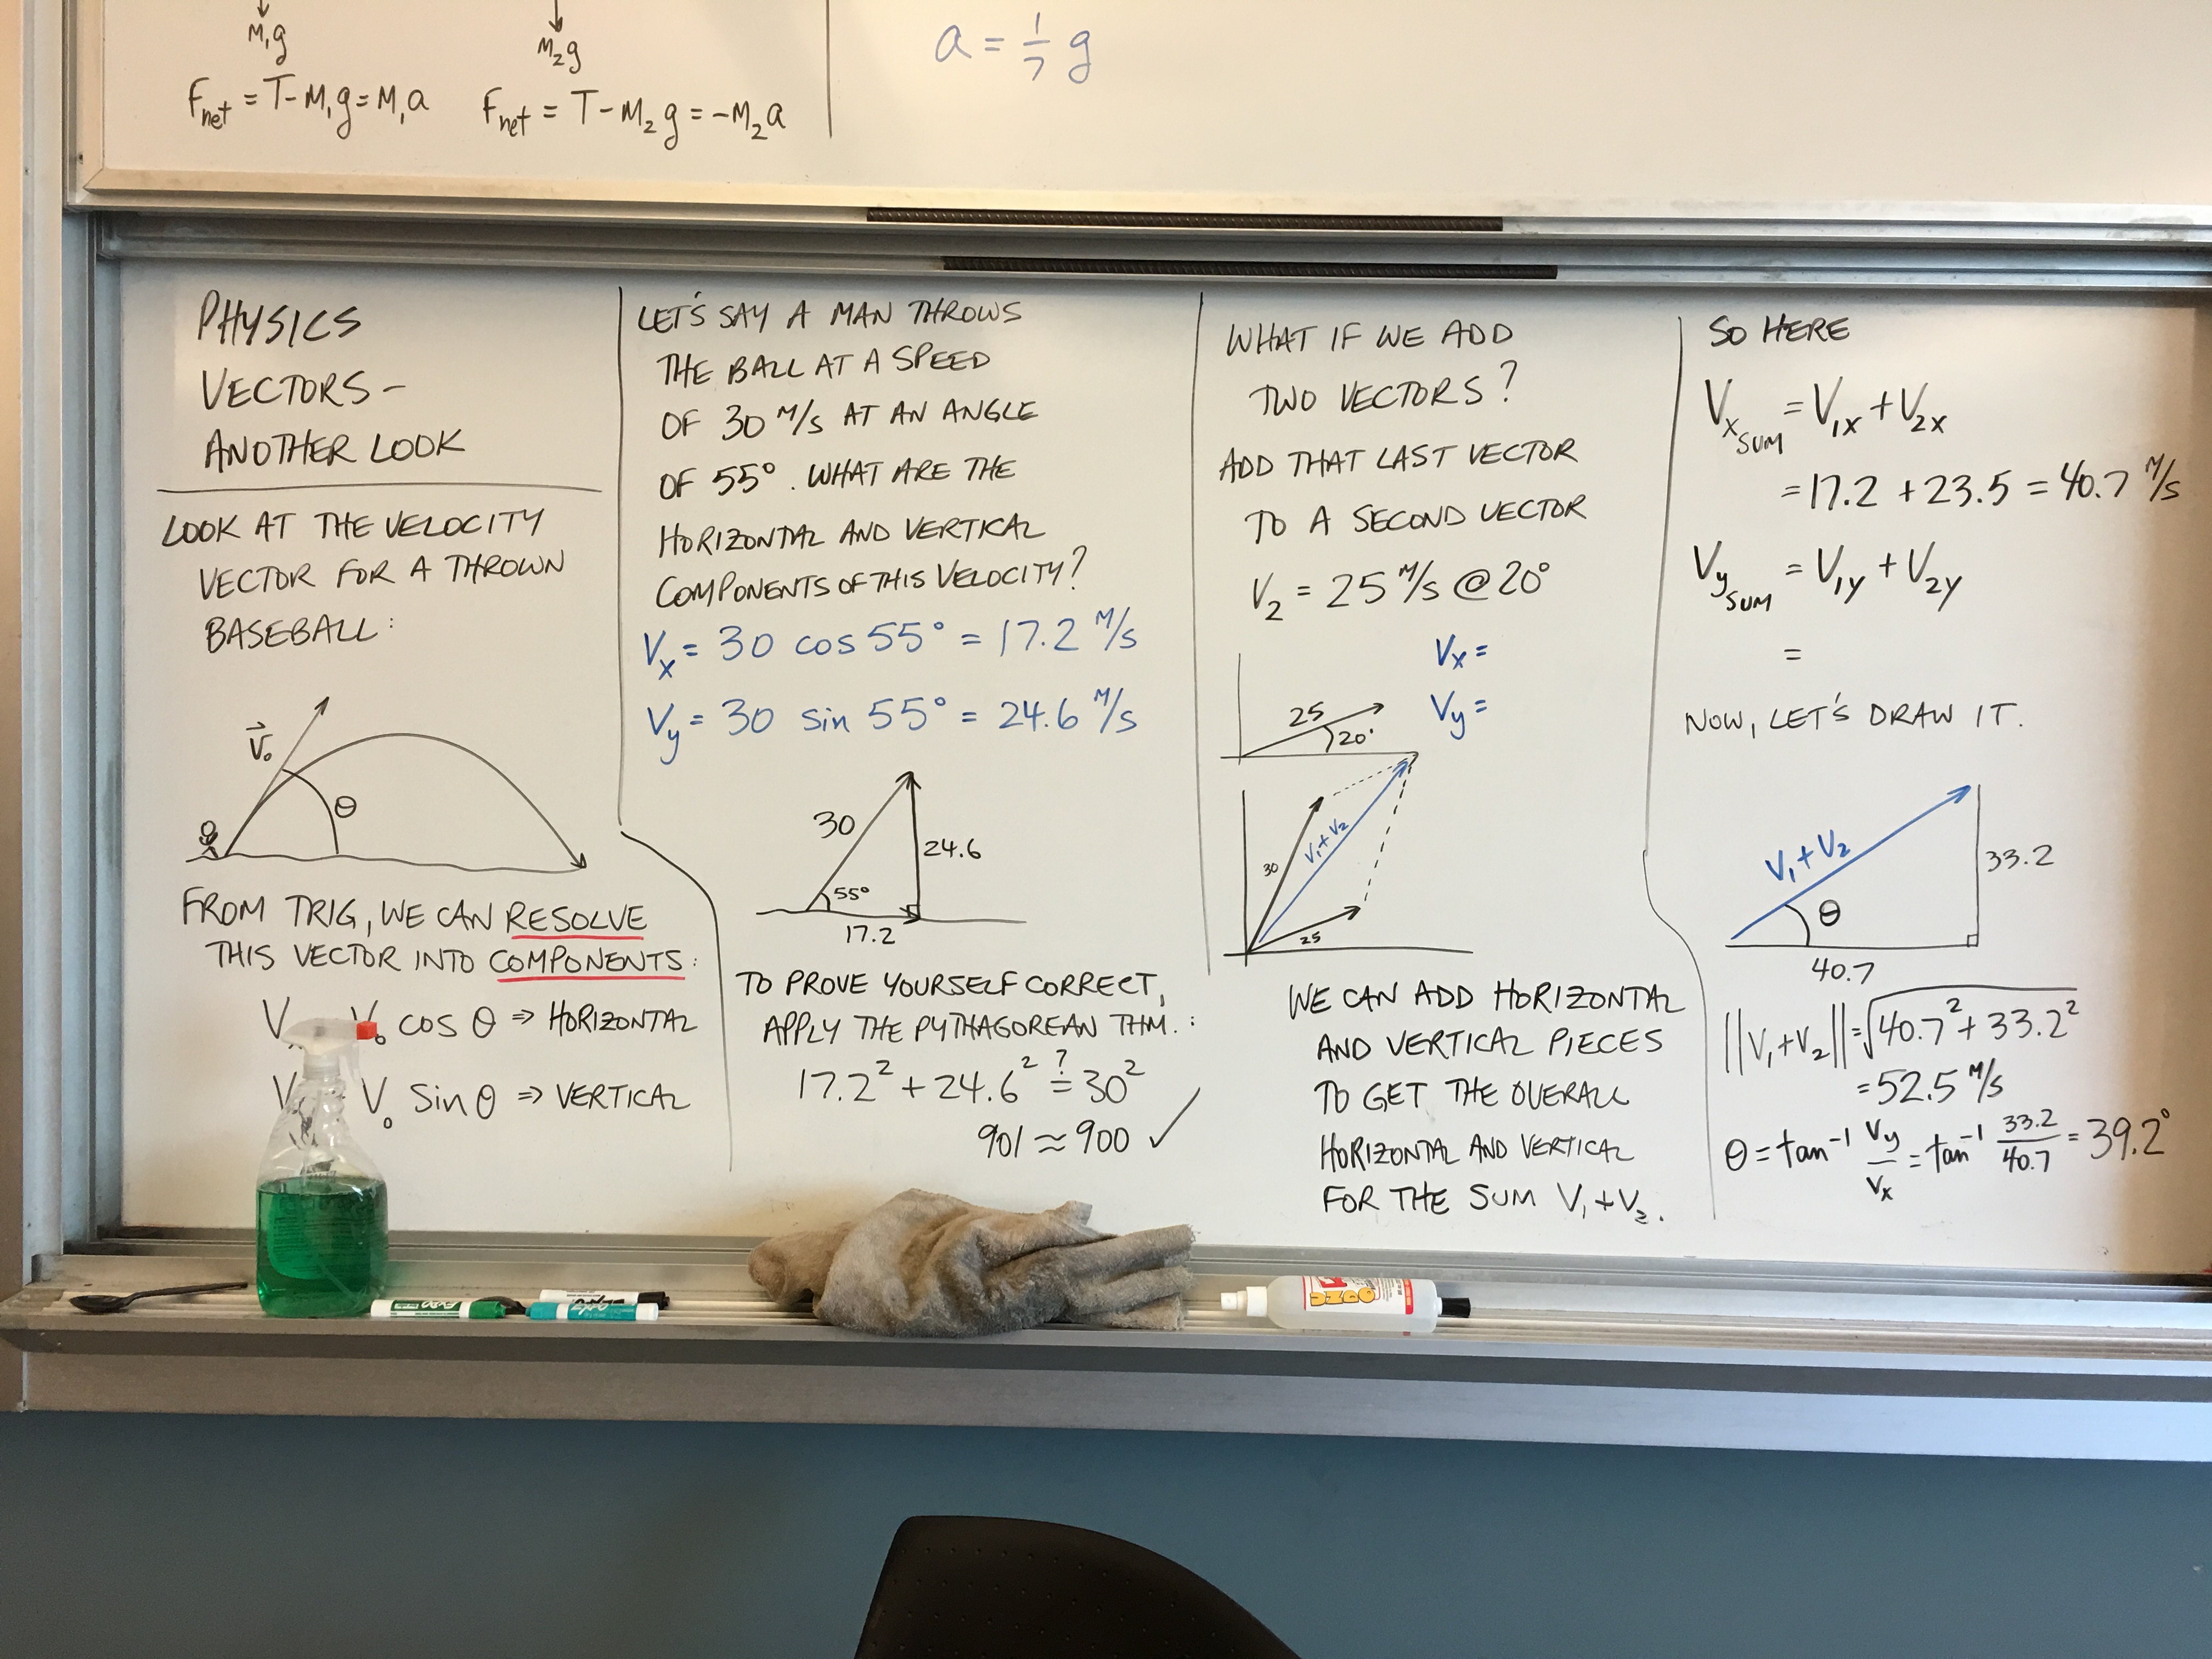 M₁g
M₂g
Fnet = T - M₁g = M₁a
Fnet = T - M₂g = -M₂a
a = 1/7 g
PHYSICS
VECTORS -
ANOTHER LOOK
LOOK AT THE VELOCITY
VECTOR FOR A THROWN
BASEBALL:
V⃗₀
θ
FROM TRIG, WE CAN RESOLVE
THIS VECTOR INTO COMPONENTS:
V V₀ cos θ ⇒ HORIZONTAL
V V₀ sin θ ⇒ VERTICAL
LET'S SAY A MAN THROWS
THE BALL AT A SPEED
OF 30 M/S AT AN ANGLE
OF 55°. WHAT ARE THE
HORIZONTAL AND VERTICAL
COMPONENTS OF THIS VELOCITY?
Vx = 30 cos 55° = 17.2 M/S
Vy = 30 sin 55° = 24.6 M/S
30
24.6
55°
17.2
TO PROVE YOURSELF CORRECT,
APPLY THE PYTHAGOREAN THM.:
17.2² + 24.6² ≟ 30²
901 ≈ 900 ✓
WHAT IF WE ADD
TWO VECTORS?
ADD THAT LAST VECTOR
TO A SECOND VECTOR
V₂ = 25 M/S @ 20°
Vx =
Vy =
25
20°
30
V₁ + V₂
25
WE CAN ADD HORIZONTAL
AND VERTICAL PIECES
TO GET THE OVERALL
HORIZONTAL AND VERTICAL
FOR THE SUM V₁ + V₂.
SO HERE
Vx SUM = V1X + V2X
= 17.2 + 23.5 = 40.7 M/S
Vy SUM = V1Y + V2Y
=
NOW, LET'S DRAW IT.
V₁ + V₂
33.2
θ
40.7
||V₁ + V₂|| = √(40.7² + 33.2²)
= 52.5 M/S
θ = tan⁻¹ Vy/Vx = tan⁻¹ 33.2/40.7 = 39.2°
EXPO